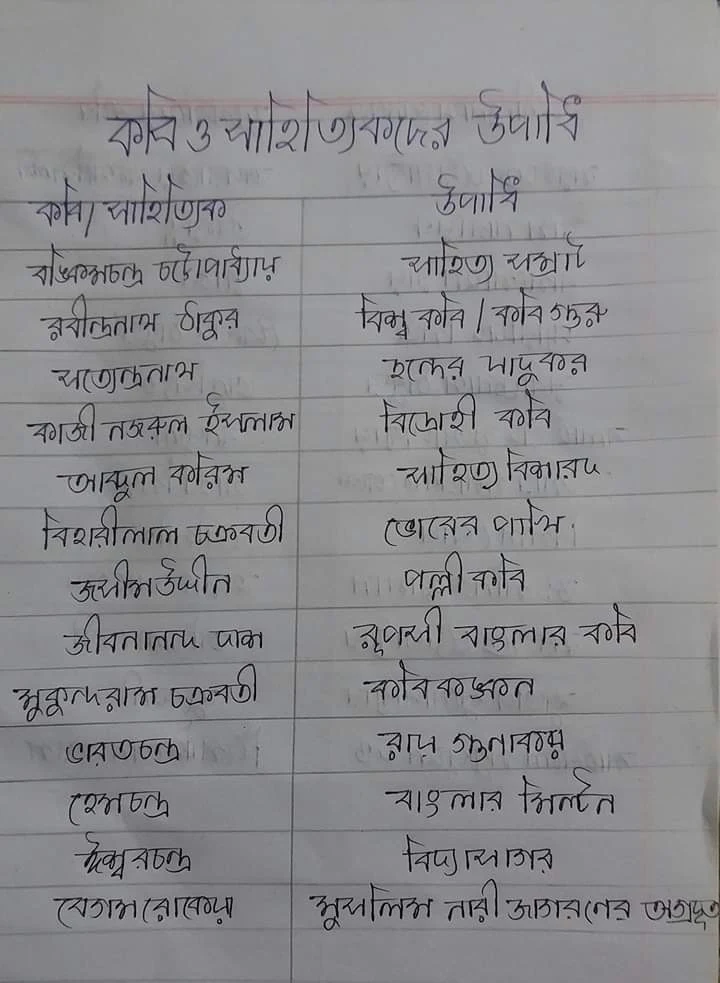 কবি ও সাহিত্যিকদের উপাধি
কবি/সাহিত্যিক উপাধি
বঙ্কিমচন্দ্র চট্টোপাধ্যায় সাহিত্য সম্রাট
রবীন্দ্রনাথ ঠাকুর বিশ্ব কবি / কবি গুরু
সত্যেন্দ্রনাথ ছন্দের যাদুকর
কাজী নজরুল ইসলাম বিদ্রোহী কবি
আব্দুল করিম সাহিত্য বিশারদ
বিহারীলাল চক্রবর্তী ভোরের পাখি
জসীমউদ্দীন পল্লী কবি
জীবনানন্দ দাশ রূপসী বাংলার কবি
মুকুন্দরাম চক্রবর্তী কবিকঙ্কন
ভারতচন্দ্র রায় গুনাকর
হেমচন্দ্র বাংলার মিল্টন
ঈশ্বরচন্দ্র বিদ্যাসাগর
বেগম রোকেয়া মুসলিম নারী জাগরনের অগ্রদূত